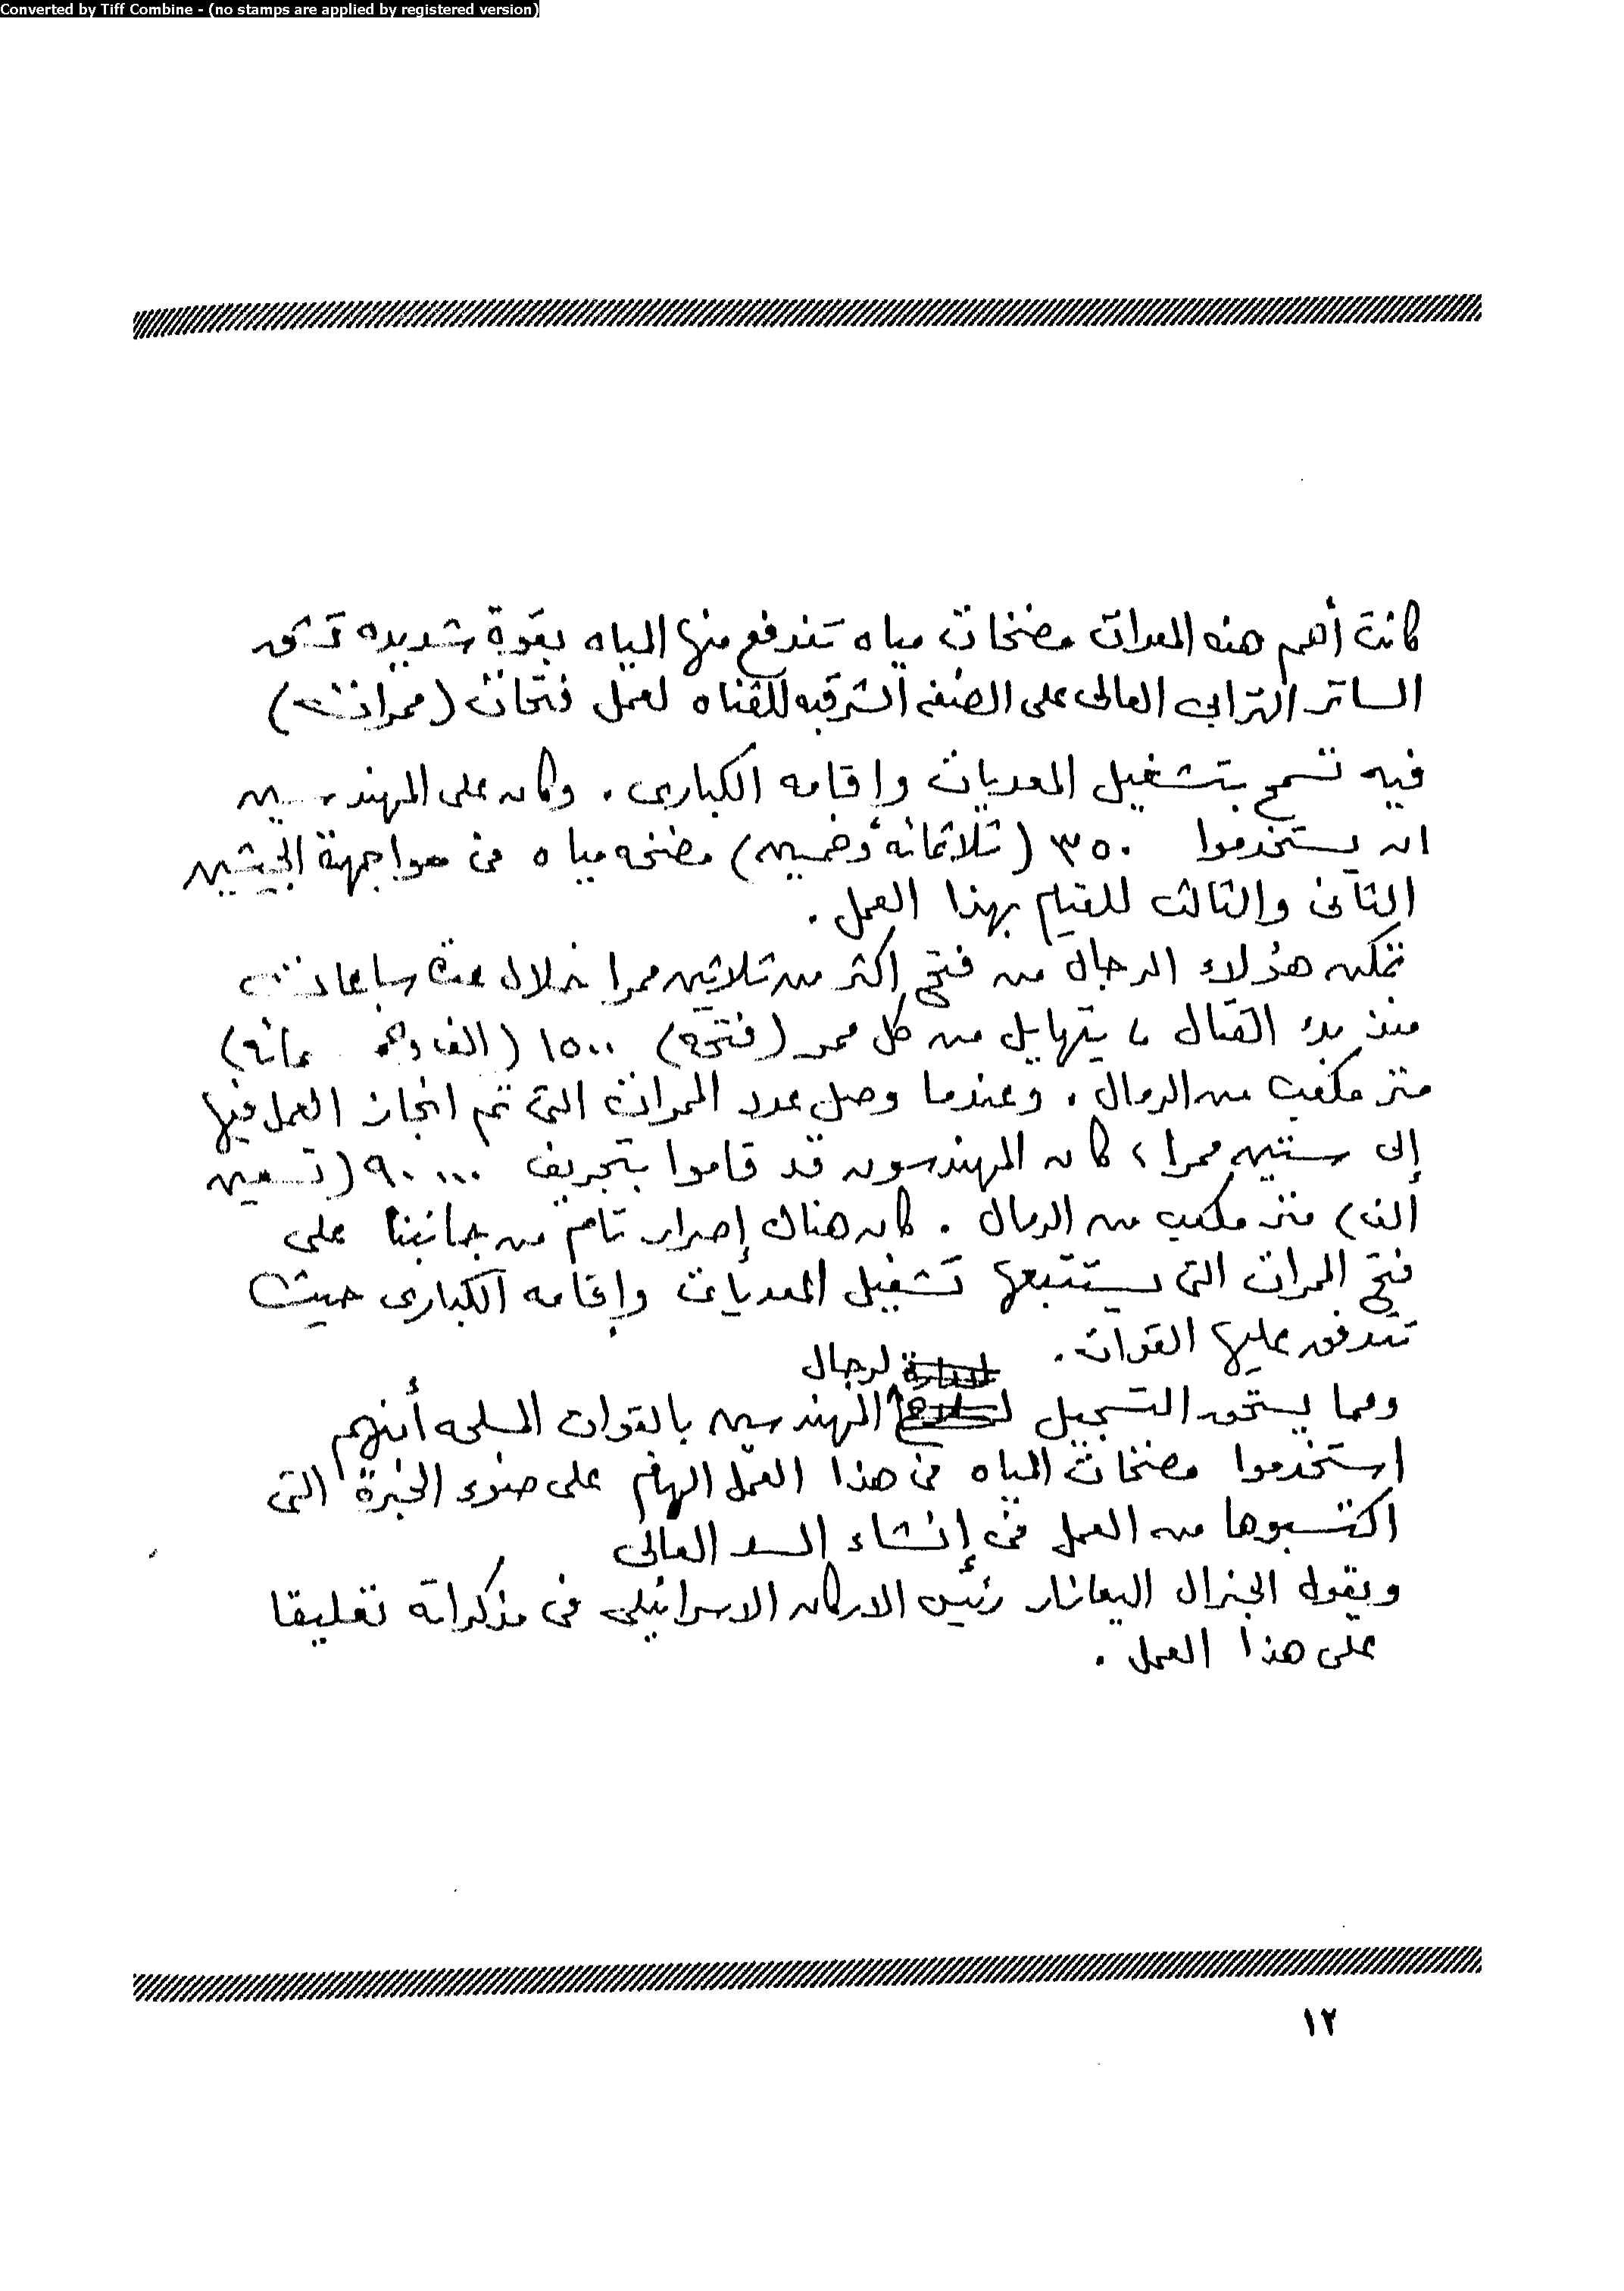 Converted by Tiff Combine - (no stamps are applied by registered version)
كانت أهم هذه المعدات مضخات مياه تندفع منها المياه بقوة شديده تشق
الساتر الترابى العالى على الضفه الشرقيه للقناه لعمل فتحات (ممرات)
فيه تسمح بتشغيل المعديات وإقامه الكبارى . وكان على المهندسين
ان يستخدموا ٣٥٠ (ثلاثمائة وخمسين) مضخه مياه فى مواجهة الجيشين
الثانى والثالث للقيام بهذا العمل .
تمكن هؤلاء الرجال من فتح أكثر من ثلاثين ممرا خلال عدة ساعات
منذ بدء القتال ، يتهايل من كل ممر (فتحه) ١٥٠٠ (الف وخمسمائه)
متر مكعب من الرمال . وعندما وصل عدد الممرات التى تم انجاز العمل فيها
إلى ستين ممرا ، كان المهندسون قد قاموا بتجريف ٩٠٠٠٠ (تسعين
ألف) متر مكعب من الرمال . كان هناك إصرار تام من جانبنا على
فتح الممرات التى يستتبعها تشغيل المعديات وإقامه الكبارى حيث
تتدفق عليها القوات .
لرجال
ومما يستحق التسجيل المهندسين بالقوات المسلحه أنهم
استخدموا مضخات المياه فى هذا العمل الهام على ضوء الخبرة التى
اكتسبوها من العمل فى إنشاء السد العالى
ويقول الجنرال اليعازار رئيس الاركان الاسرائيلى فى مذكراته تعليقا
على هذا العمل .
١٢